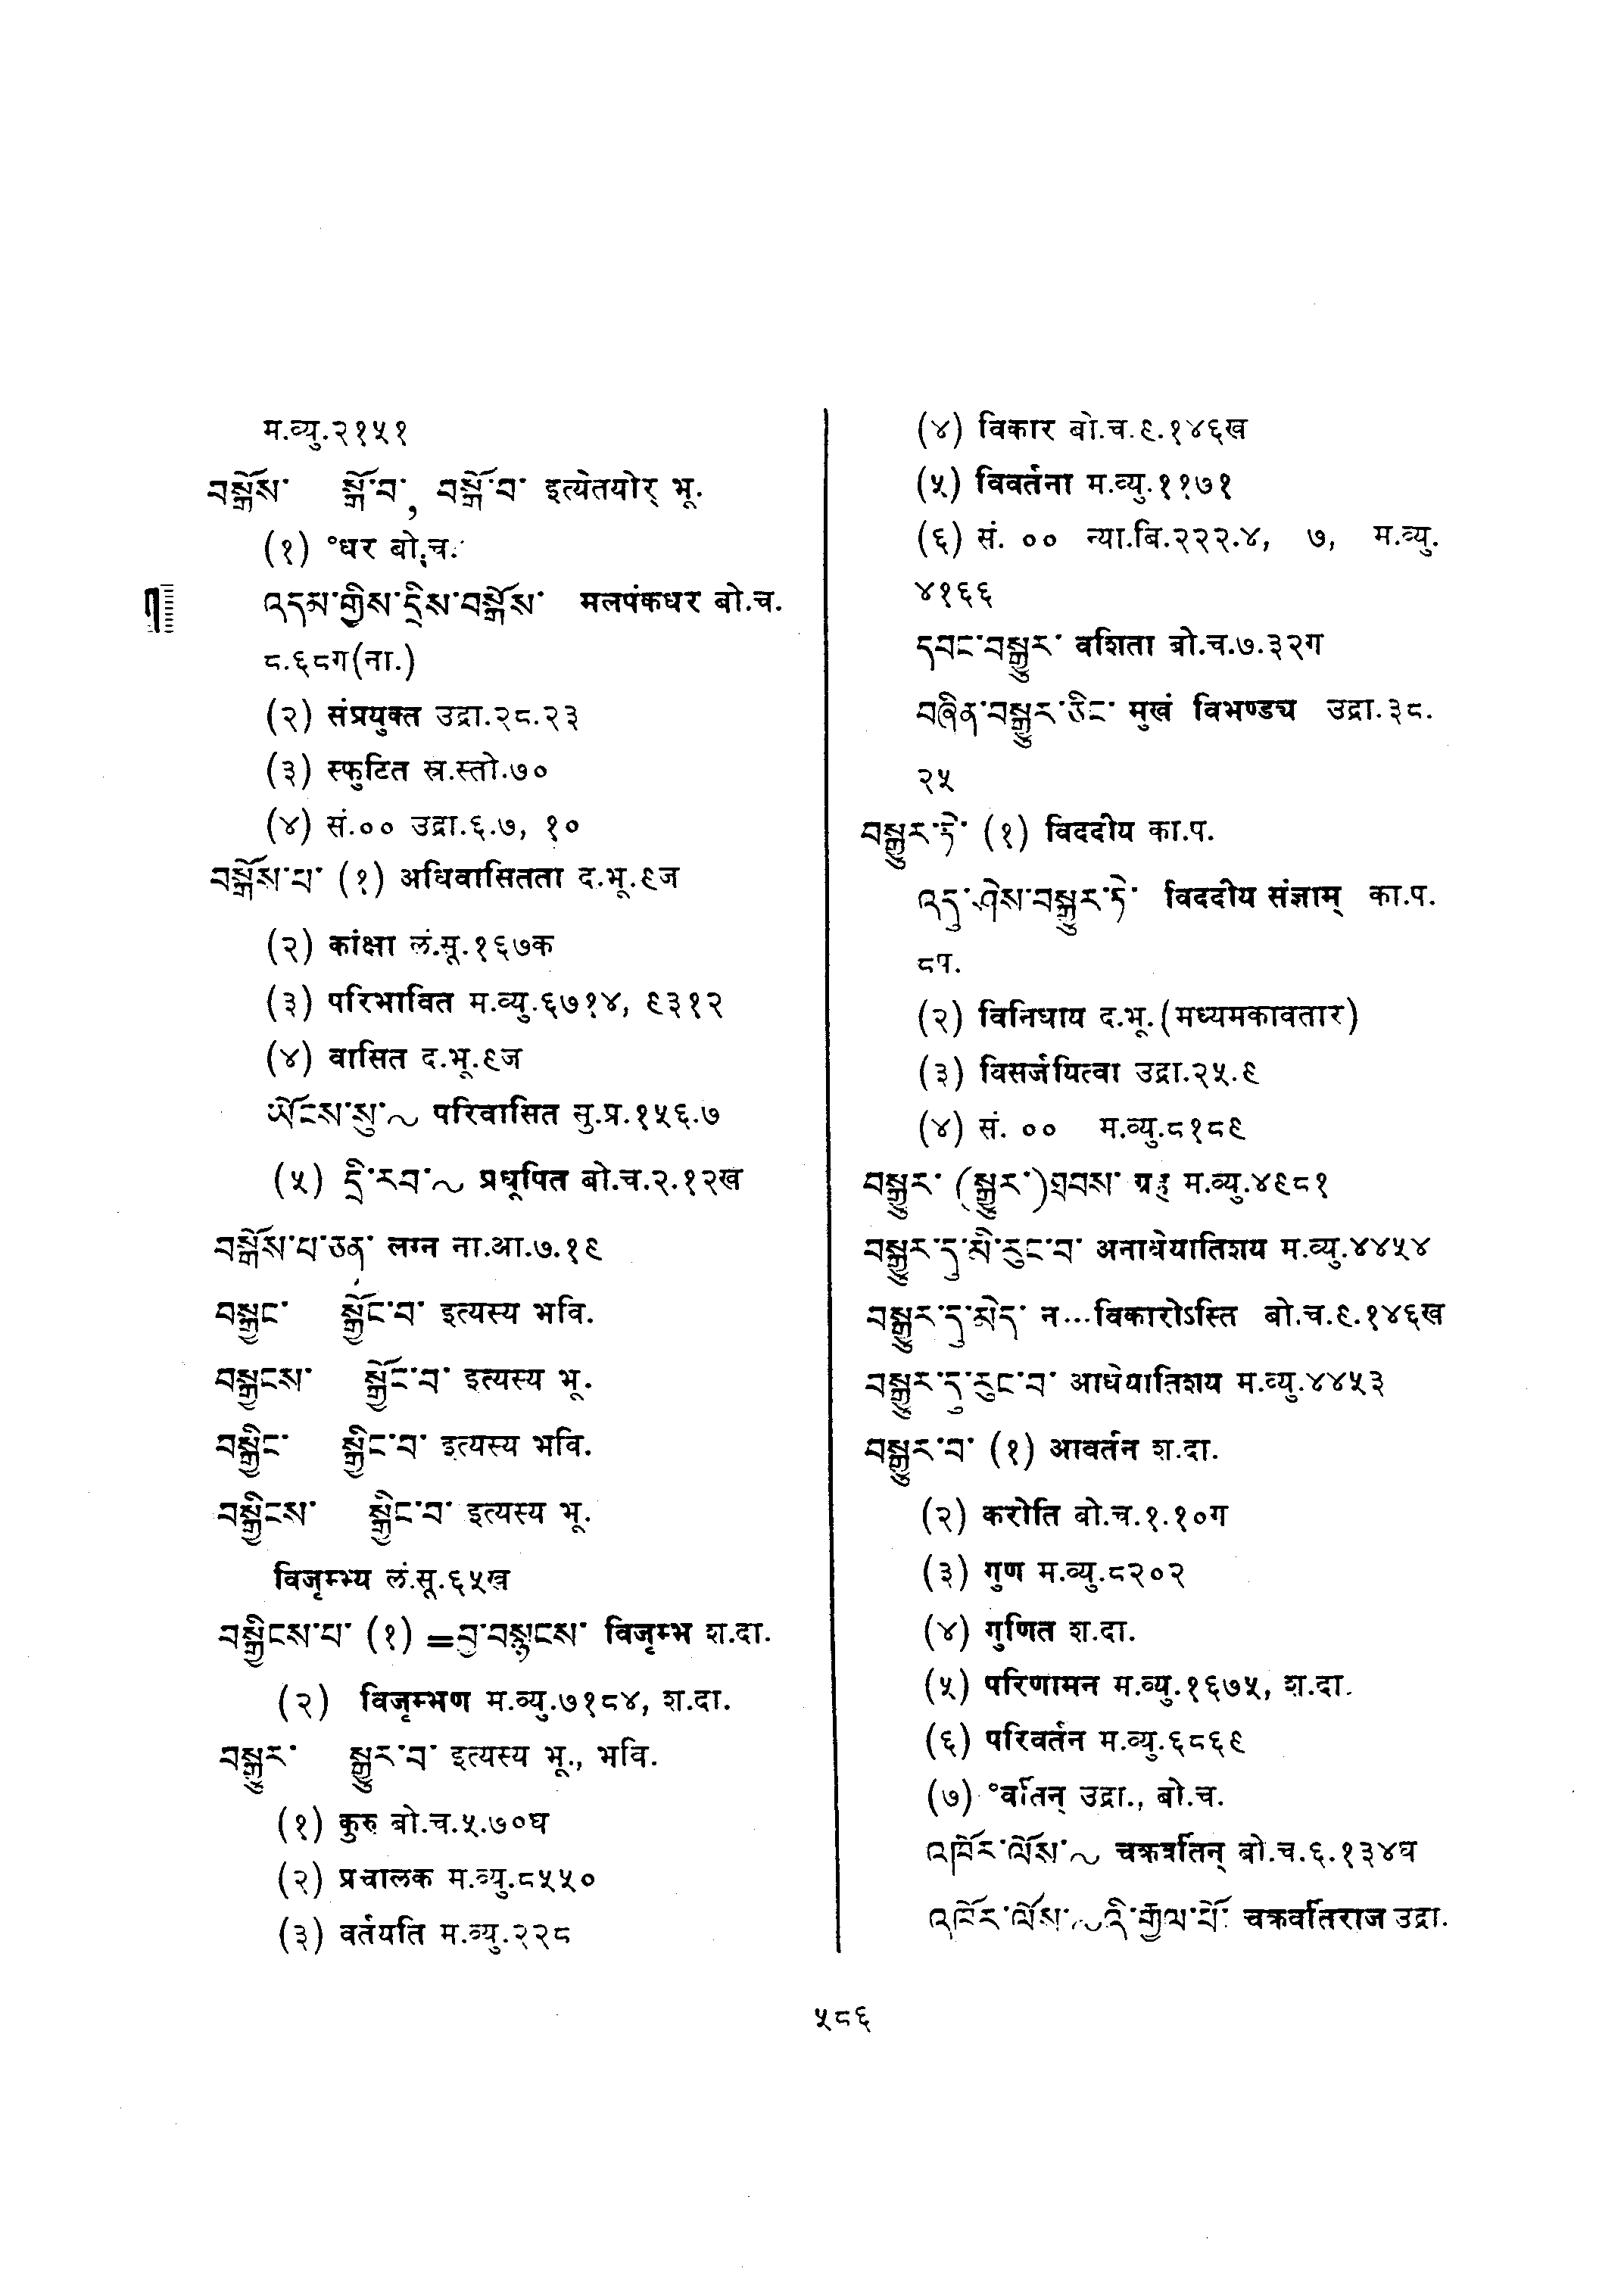 म.व्यु.२१५१
བསྒོས་ སྒོ་བ་, བསྒོ་བ་ इत्येतयोर् भू.
(१) °धर बो.च.
འདམ་གྱིས་དྲིས་བསྒོས་ मलपंकधर बो.च.
८.६८ग(ना.)
(२) संप्रयुक्त उद्रा.२८.२३
(३) स्फुटित स्र.स्तो.७०
(४) सं.०० उद्रा.६.७, १०
བསྒོས་པ་ (१) अधिवासितता द.भू.९ज
(२) कांक्षा लं.सू.१६७क
(३) परिभावित म.व्यु.६७१४, ९३१२
(४) वासित द.भू.९ज
ཡོངས་སུ་~ परिवासित सु.प्र.१५६.७
(५) དྲི་རབ་~ प्रधूपित बो.च.२.१२ख
བསྒོས་པ་ཅན་ लग्न ना.आ.७.१९
བསྒྱང་ སྒྱོང་བ་ इत्यस्य भवि.
བསྒྱངས་ སྒྱོང་བ་ इत्यस्य भू.
བསྒྱིང་ སྒྱིང་བ་ इत्यस्य भवि.
བསྒྱིངས་ སྒྱིང་བ་ इत्यस्य भू.
विजृम्भ्य लं.सू.६५ख
བསྒྱིངས་པ་ (१) =བྱ་བསྙངས་ विजृम्भ श.दा.
(२) विजृम्भण म.व्यु.७१८४, श.दा.
བསྒྱུར་ སྒྱུར་བ་ इत्यस्य भू., भवि.
(१) कुरु बो.च.५.७०घ
(२) प्रचालक म.व्यु.८५५०
(३) वर्तयति म.व्यु.२२८
(४) विकार बो.च.९.१४६ख
(५) विवर्तना म.व्यु.११७१
(६) सं. ०० न्या.बि.२२२.४, ७, म.व्यु.
४१६६
དབང་བསྒྱུར་ वशिता बो.च.७.३२ग
བཞིན་བསྒྱུར་ཅིང་ मुखं विभण्ड्य उद्रा.३८.
२५
བསྒྱུར་ཏེ་ (१) विददीय का.प.
འདུ་ཤེས་བསྒྱུར་ཏེ་ विददीय संज्ञाम् का.प.
८प.
(२) विनिधाय द.भू.(मध्यमकावतार)
(३) विसर्जयित्वा उद्रा.२५.९
(४) सं. ०० म.व्यु.८१८९
བསྒྱུར་ (སྒྱུར་)ཐབས་ ग्रह म.व्यु.४९८१
བསྒྱུར་དུ་མི་རུང་བ་ अनाधेयातिशय म.व्यु.४४५४
བསྒྱུར་དུ་མེད་ न...विकारोऽस्ति बो.च.९.१४६ख
བསྒྱུར་དུ་རུང་བ་ आधेयातिशय म.व्यु.४४५३
བསྒྱུར་བ་ (१) आवर्तन श.दा.
(२) करोति बो.च.१.१०ग
(३) गुण म.व्यु.८२०२
(४) गुणित श.दा.
(५) परिणामन म.व्यु.१६७५, श.दा.
(६) परिवर्तन म.व्यु.६८६९
(७) °वर्तिन् उद्रा., बो.च.
འཁོར་ལོས་~ चक्रवर्तिन् बो.च.६.१३४घ
འཁོར་ལོས་~འི་རྒྱལ་པོ་ चक्रवर्तिराज उद्रा.
५८६